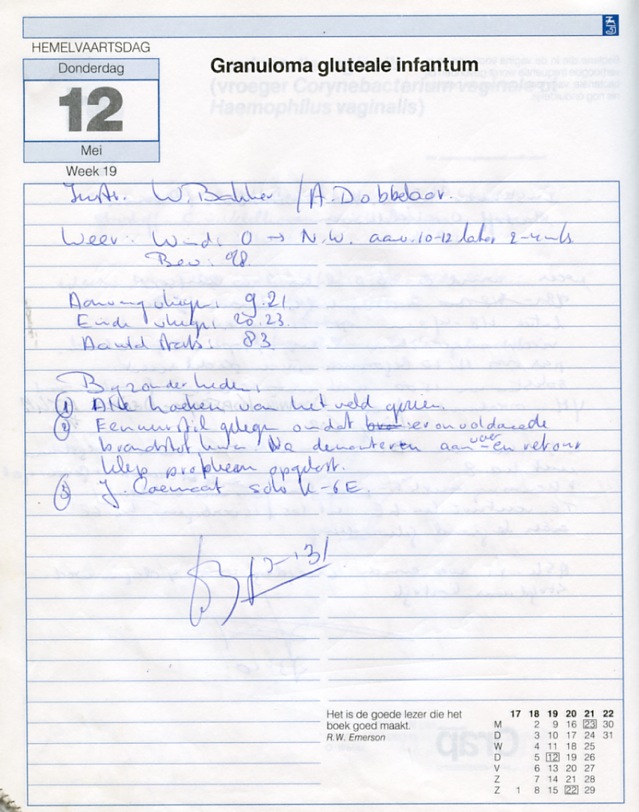 HEMELVAARTSDAG
Donderdag
12
Mei
Week 19
Granuloma gluteale infantum
(vroeger Corynebacterium vaginale of
Haemophilus vaginalis)
Instr. W. Bakker / A. Dobbelaar.
Weer: Wind: O → N.W. aanv. 10-12 later 2-4 m/s
Bew: 
Aanvang vliegen: 9.21
Einde vliegen: 20.23.
Aantal starts: 83
Bijzonderheden:
① Alle hoeken van het veld gezien.
② Een uur stil gelegen omdat er onvoldoende
brandstof kwam. Na demonteren aanvoer- en retour
klep probleem opgelost.
③ J. solo K-6E.
Het is de goede lezer die het
boek goed maakt.
R.W. Emerson
17 18 19 20 21 22
M 2 9 16 23 30
D 3 10 17 24 31
W 4 11 18 25
D 5 12 19 26
V 6 13 20 27
Z 7 14 21 28
Z 1 8 15 22 29